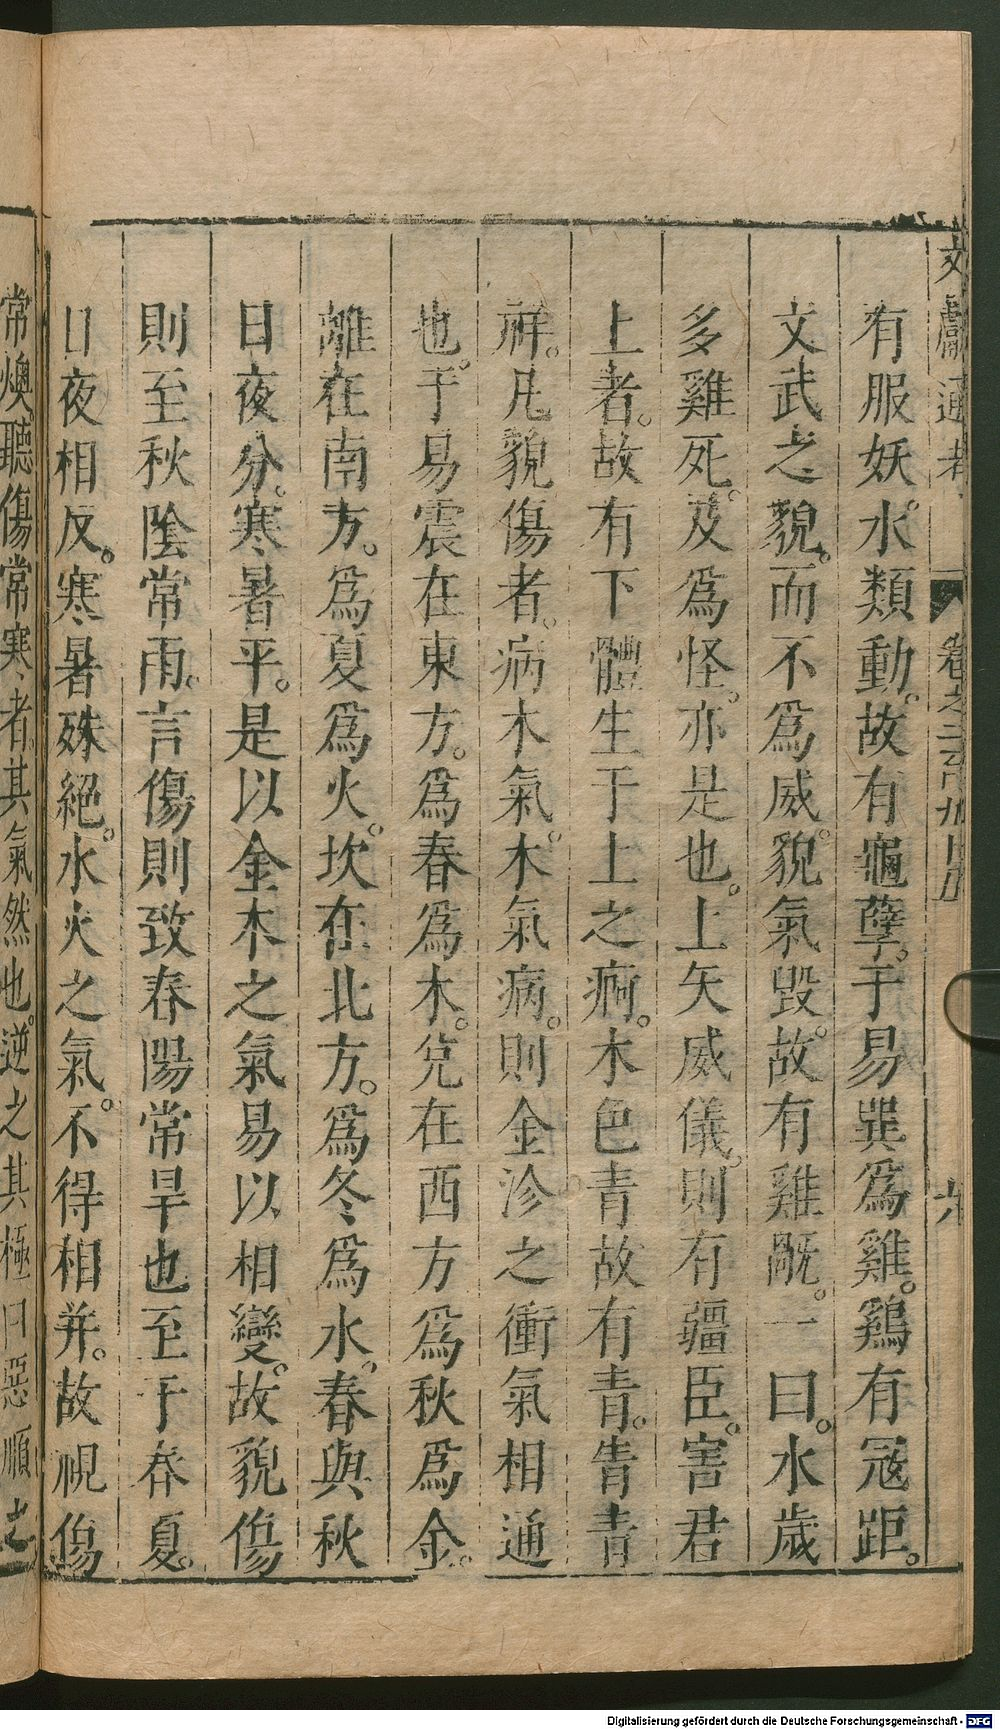 文獻通考 卷之二百九十五 六
有服妖。水類動。故有龜孽。于易巽爲雞。鷄有冠距。
文武之貌。而不爲威。貌氣毀。故有雞𤯝。一曰。水歲
多雞死。及爲怪。亦是也。上失威儀。則有疆臣。害君
上者。故有下體生于上之痾。木色青故有青。眚青
祥。凡貌傷者。病木氣。木氣病。則金沴之衝氣相通
也。于易震在東方。爲春爲木。兌在西方爲秋爲金。
離在南方。爲夏爲火。坎在北方。爲冬爲水。春與秋
日夜分。寒暑平。是以金木之氣易以相變。故貌傷
則至秋陰常雨。言傷則致春陽常旱也至于春夏。
日夜相反。寒暑殊絕。水火之氣。不得相并。故視傷
常燠。聽傷常寒者。其氣然也。逆之其極曰惡順之
Digitalisierung gefördert durch die Deutsche Forschungsgemeinschaft - DFG